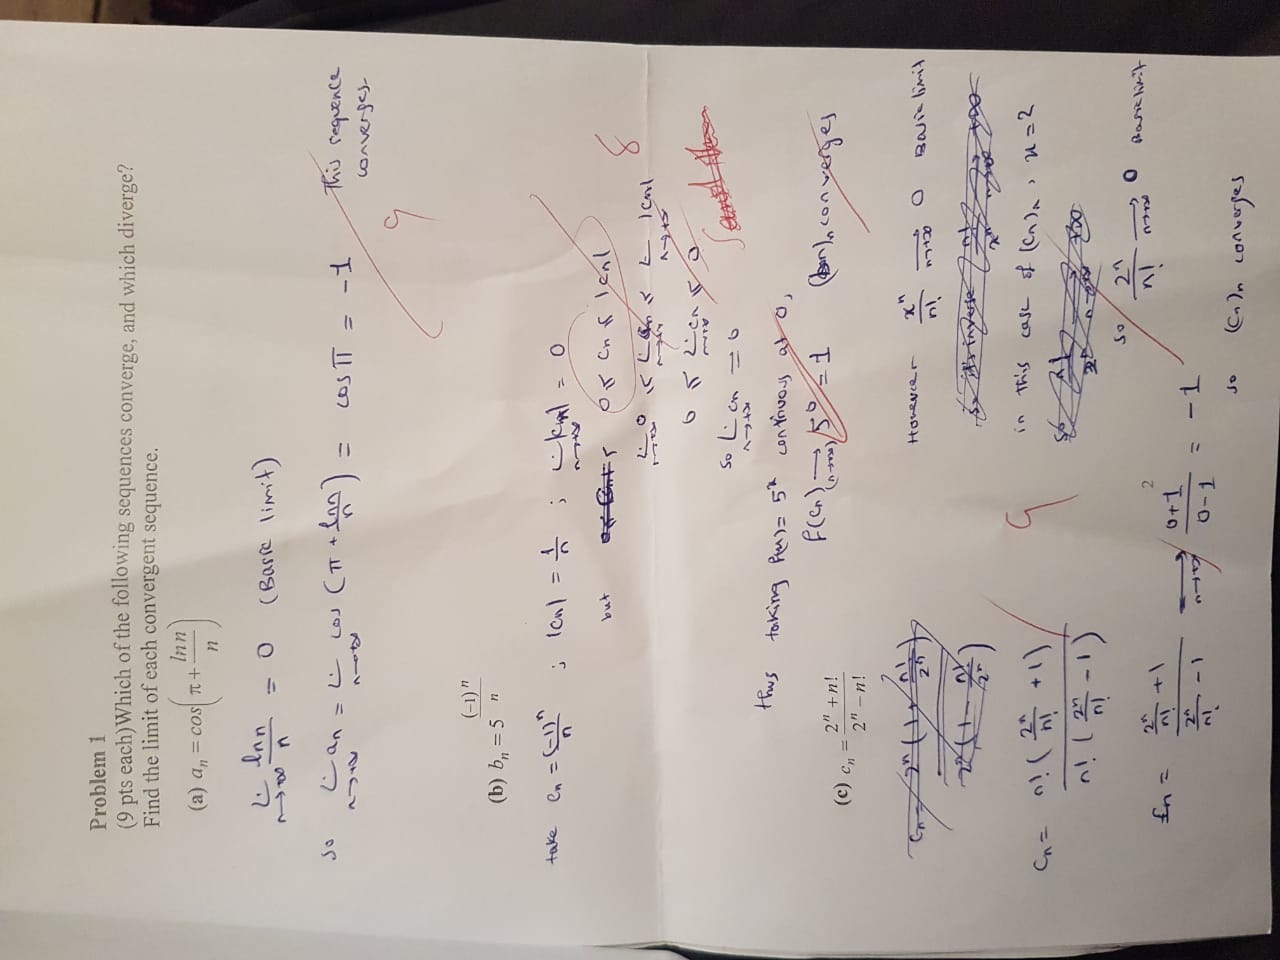 Problem 1
(9 pts each)Which of the following sequences converge, and which diverge?
Find the limit of each convergent sequence.
(a) a_n = cos(π + ln n / n)
L_{n→+∞} ln n / n = 0 (Basic limit)
so L_{n→+∞} a_n = L_{n→+∞} cos(π + ln n / n) = cos π = -1 This sequence converges.
9
(b) b_n = 5^{(-1)^n / n}
take c_n = (-1)^n / n ; |c_n| = 1/n ; L_{n→+∞} |c_n| = 0
but 0 ≤ c_n ≤ |c_n|
8
L_{n→+∞} 0 ≤ L_{n→+∞} c_n ≤ L_{n→+∞} |c_n|
0 ≤ L_{n→+∞} c_n ≤ 0
so L_{n→+∞} c_n = 0
thus taking f(x) = 5^x continuous at 0,
f(c_n) →_{(n→+∞)} 5^0 = 1 (b_n)_n converges
(c) c_n = (2^n + n!) / (2^n - n!)
c_n = n!(2^n/n! + 1) / n!(2^n/n! - 1)
9
c_n = (2^n/n! + 1) / (2^n/n! - 1) →_{n→+∞} (0+1) / (0-1) = -1
However x^n / n! →_{n→+∞} 0 Basic limit
in this case of (c_n)_n, x = 2
so 2^n / n! →_{n→+∞} 0 Basic limit
so (c_n)_n converges